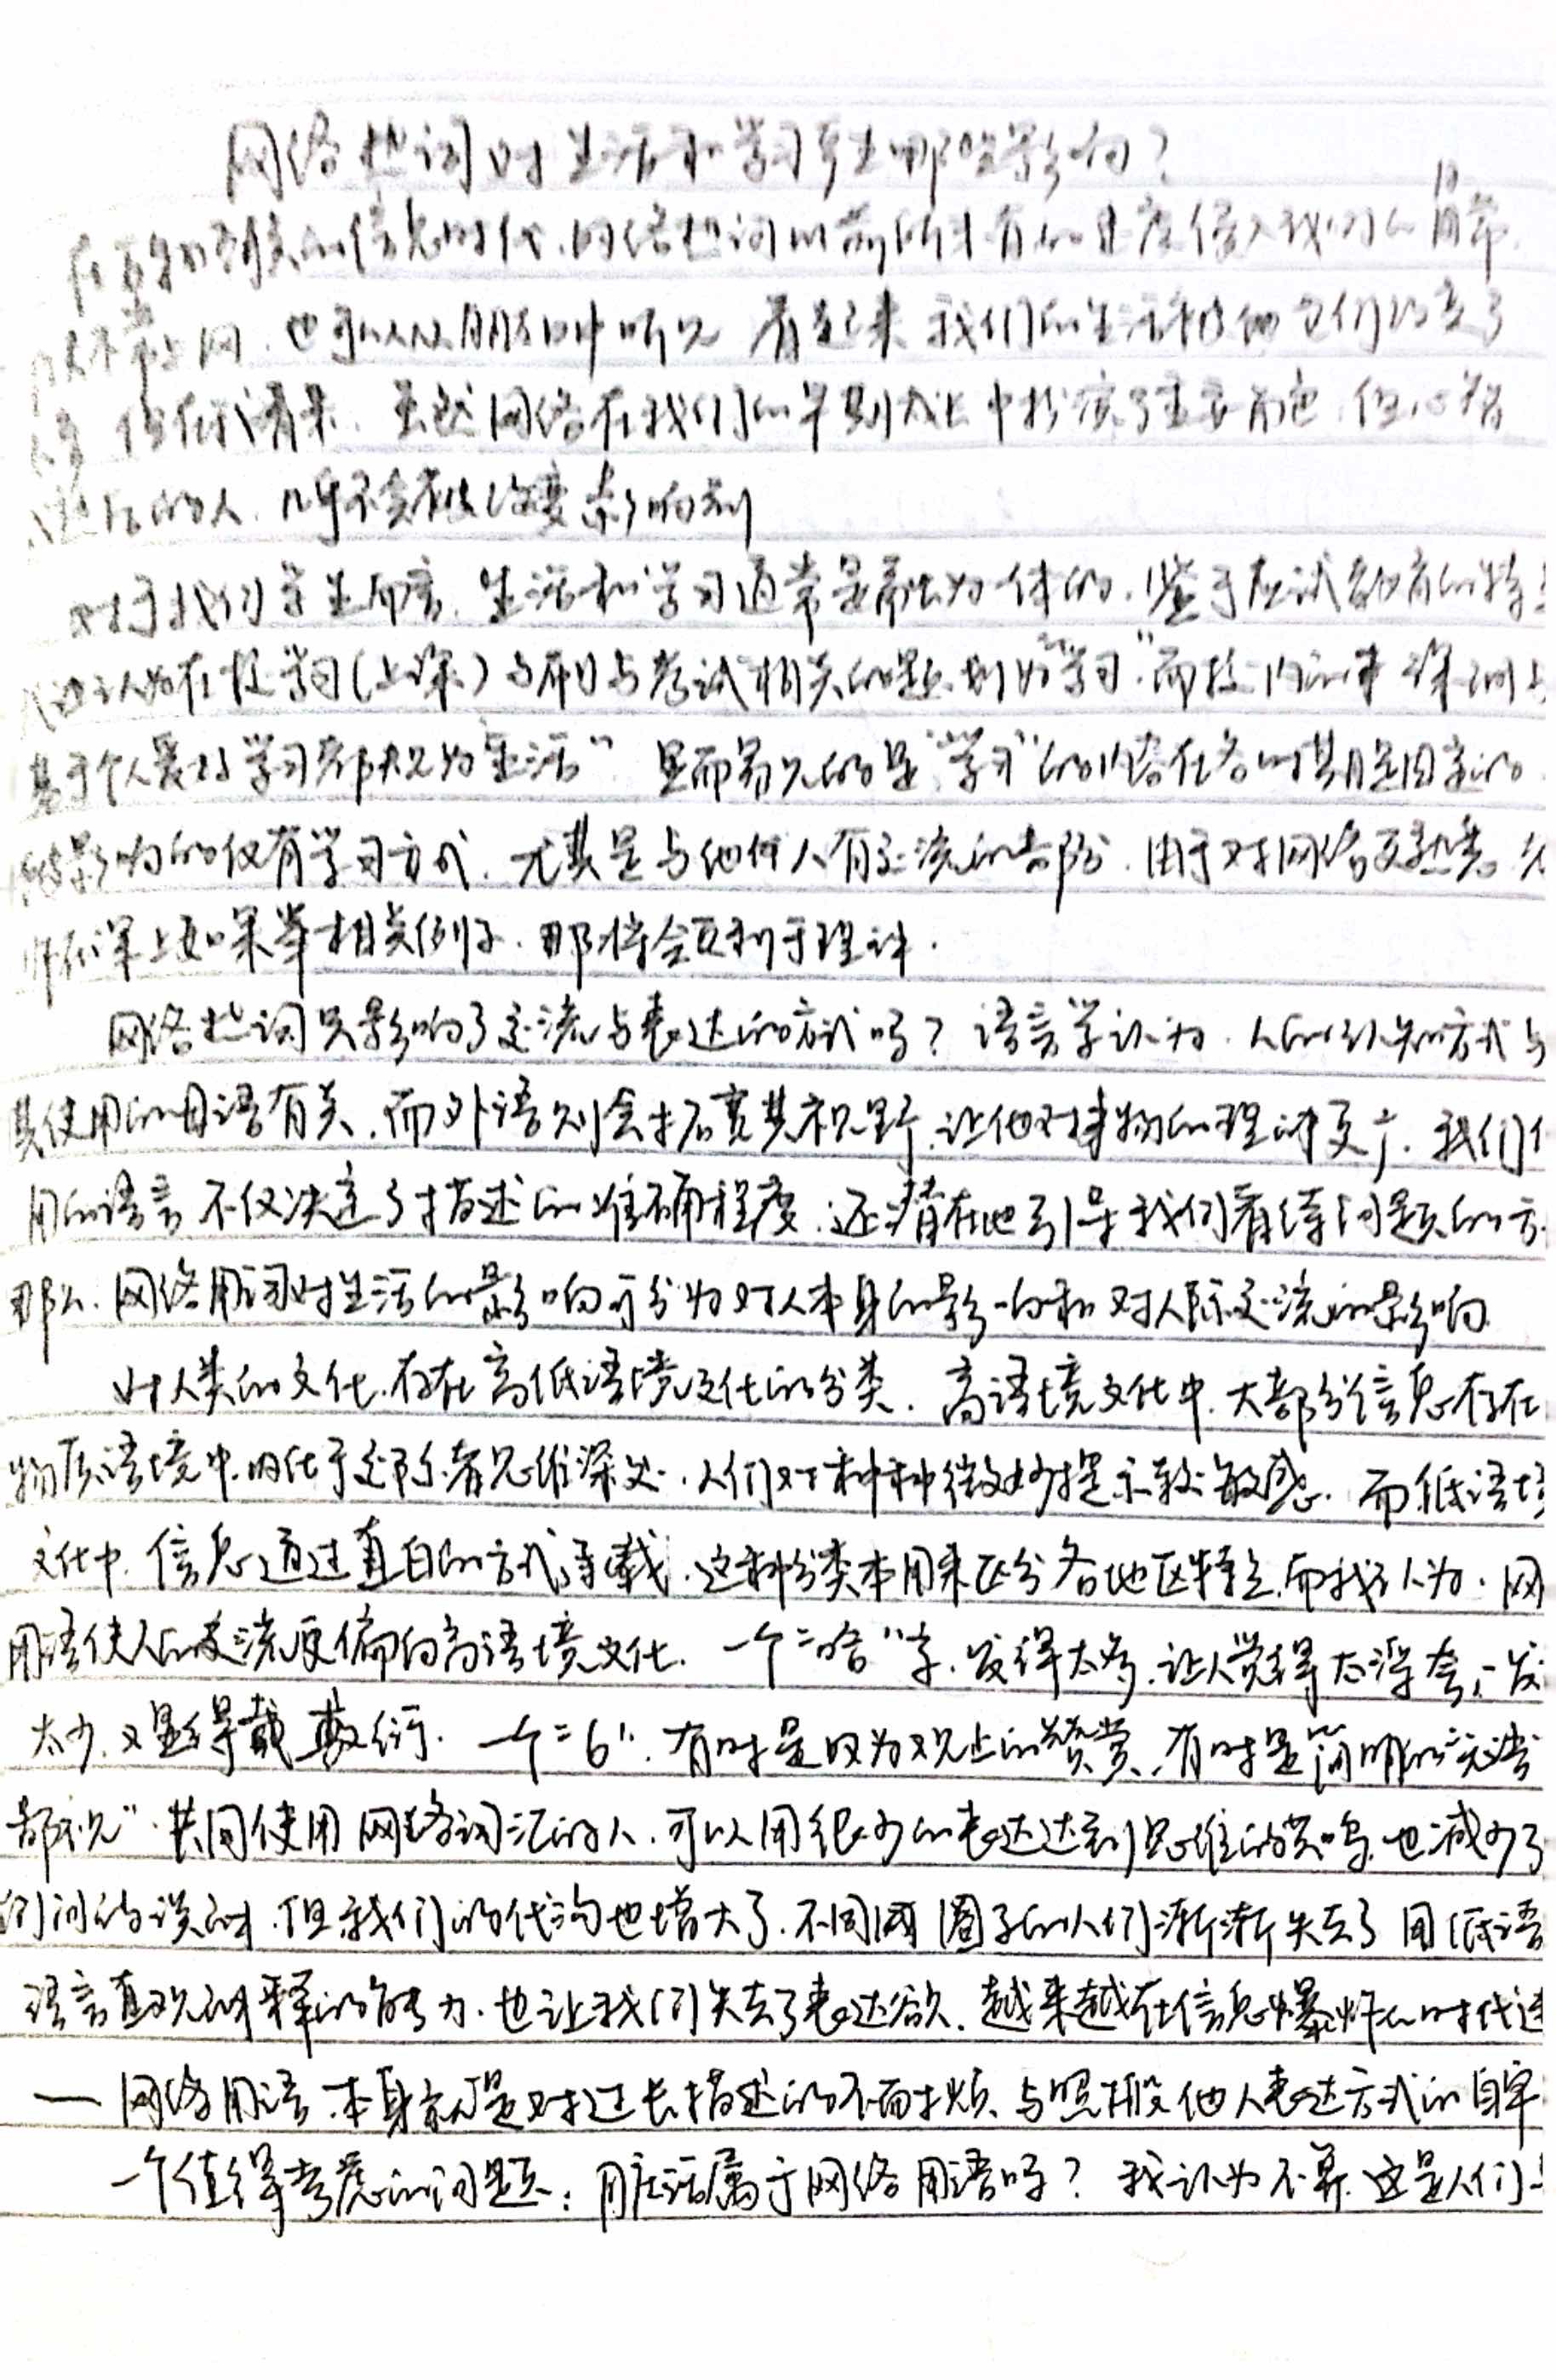 网络热词对生活和学习产生哪些影响?
在 信息时代,网络热词以前所未有的 度侵入我们的日常
不常上网,也可以从朋友口中听见 看起来,我们的生活 被它们改变了
但在我看来,虽然网络在我们的早期成长中扮演了重要角色,但心智
的人,几乎不会被 影响到
对于我们学生而言,生活和学习通常是 为一体的,鉴于应试教育的特
认为在校学习(上课)与 与考试相关的 为“学习”,而 课
基于个人爱好学习都视为“生活” 显而易见的是“学习”的内容在各时期是固定的
影响的仅有学习方式,尤其是与他人有交流的部分,由于对网络更熟悉,
师在课上如果举相关例子,那将会更利于理解.
网络热词只影响了交流与表达的方式吗?语言学认为,人的认知方式与
其使用的母语有关,而外语则会拓宽其视野,让他对事物的理解更广.我们
用的语言不仅决定了描述的准确程度,还潜在地引导我们看待问题的方
那么,网络用词对生活的影响可分为对人本身的影响和对人际交流的影响
对人类的文化,存在高低语境文化的分类.高语境文化中,大部分信息存在
物质语境中,内化于交际者思维深处,人们对种种微妙提示较敏感.而低语境
文化中,信息通过直白的方式承载.这种分类本用来区分各地区特色,而我认为,网
用语使人的交流更偏向高语境文化.一个“哈”字,发得太多,让人觉得太浮夸,发
太少,又显得 敷衍.一个“6”,有时是因为观止的赞赏,有时是简明的“无语
都说”.共同使用网络词汇的人,可以用很少的表达达到思维的共鸣,也减少了
们间的误解.但我们的代沟也增大了.不同 圈子的人们渐渐失去了用低语
语言直观解释的能力.也让我们失去了表达欲,越来越在信息爆炸的时代迷
—网络用语本身就是对过长描述的不耐烦,与照搬他人表达方式的自卑
一个值得考虑的问题:用 话属于网络用语吗?我认为不算.这是人们